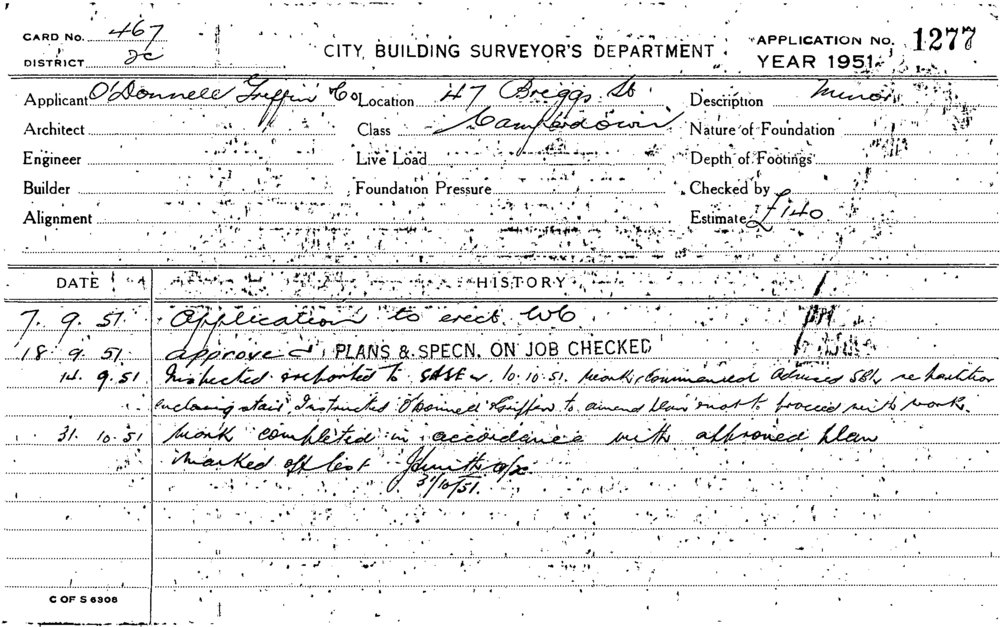 CARD No. 467
DISTRICT 2c
CITY BUILDING SURVEYOR'S DEPARTMENT
APPLICATION No. 1277
YEAR 1951
Applicant O'Donnell Griffin Co Location 47 Briggs St Description Minor
Architect Class Camperdown Nature of Foundation
Engineer Live Load Depth of Footings
Builder Foundation Pressure Checked by
Alignment Estimate £140
DATE HISTORY
7. 9. 51 Application to erect WC
18 9. 51 approved PLANS & SPECN. ON JOB CHECKED
14 9.51 Inspected & reported to 10.10.51. Work Commenced advised re partition
enclosing stair, Instructed O'Donnell Griffin to amend plan & not to proceed with work.
31. 10. 51 Work completed in accordance with approved plan
marked off list
31/10/51.
C OF S 6308